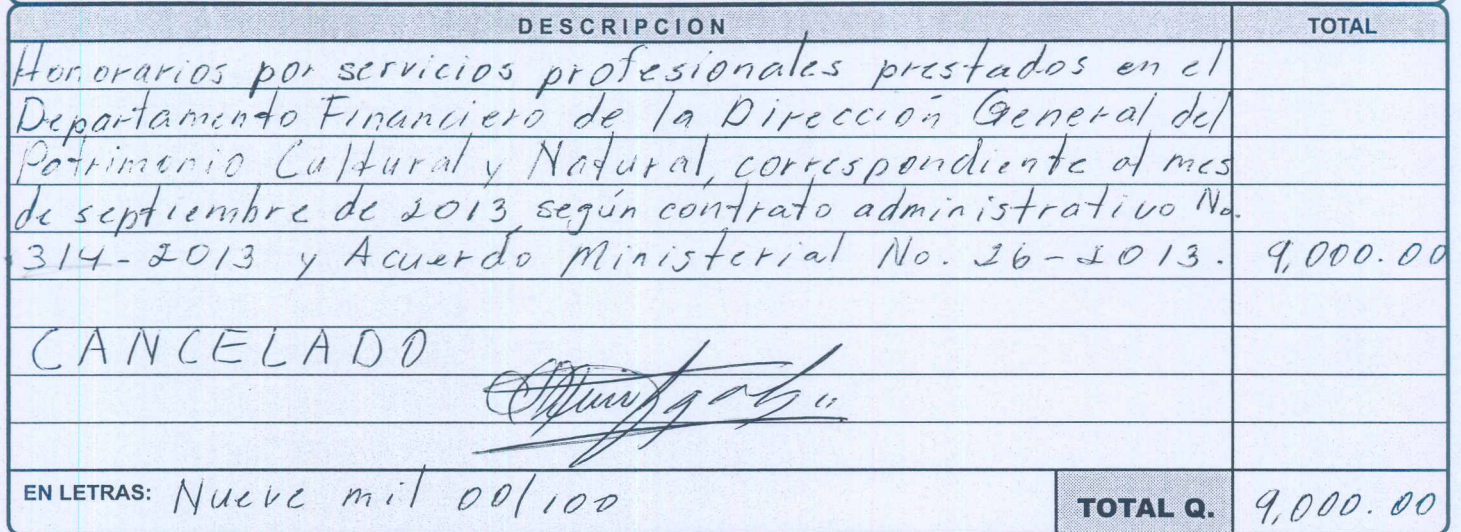 DESCRIPCION TOTAL
Honorarios por servicios profesionales prestados en el
Departamento Financiero de la Dirección General del
Patrimonio Cultural y Natural, correspondiente al mes
de septiembre de 2013, según contrato administrativo No.
314-2013 y Acuerdo Ministerial No. 26-2013. 9,000.00
CANCELADO
EN LETRAS: Nueve mil 00/100 TOTAL Q. 9,000.00